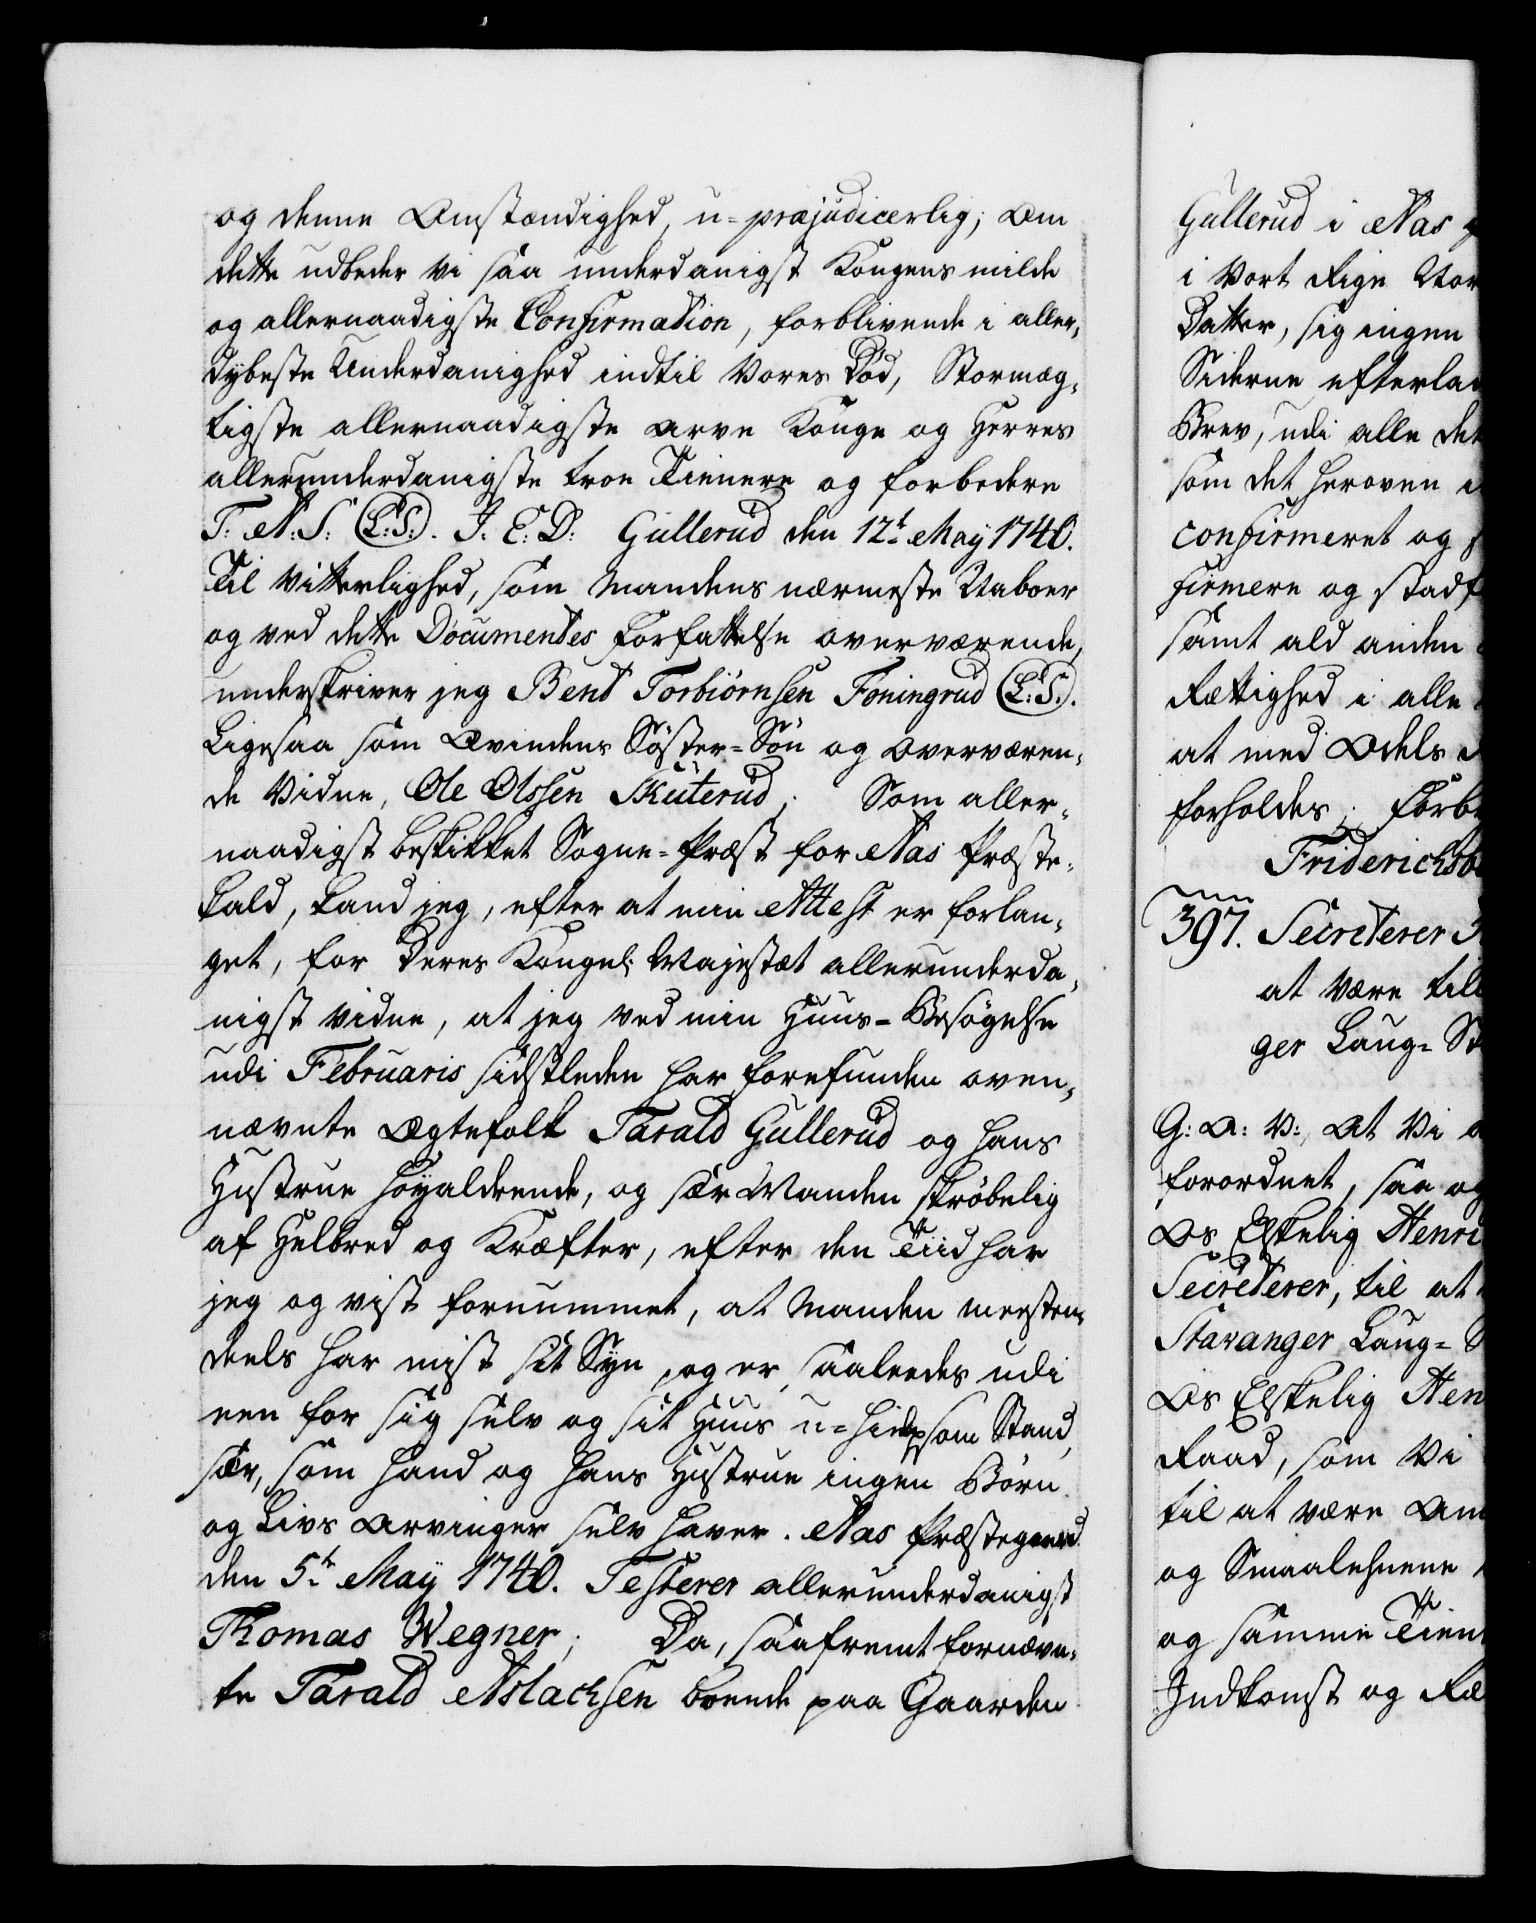 og denne Omstændighed, u=præjudicerlig; Om
dette udbeder vi saa underdanigst Kongens milde
og allernaadigste Confirmation, forblivende i aller,
dybeste Underdanighed indtil Vores Død, Stormæg,
tigste allernaadigste Arve Konge og Herres
allerunderdanigste troe Tienere og forbedere
T: A: S: (L:S:). J: E: D: Gullerud den 12t May 1740.
Til Vitterlighed, som Mandens nærmeste Naboer
og ved dette Documentes Forfattelse overværende,
underskriver jeg Bent Torbiørnsen Foningrud (L:S:).
Ligesaa som Qvindens Søster=Søn og Overværen,
de Vidne, Ole Olssen Skuterud; Som aller,
naadigst beskikket Sogne=Præst for Nas Præste,
kald, kand jeg, efter at min Attest er forlan,
get, for Deres Kongel: Majestæt allerunderda,
nigst vidne, at jeg ved min Huus=Besøgelse
udi Februaris sidstleden har forefunden oven,
nævnte Ægtefolk Tarald Gullerud og hans
Hustrue høyaldrende, og sær Manden skrøbelig
af Helbred og Kræfter, efter den Tiid har
jeg og vist fornummet, at Manden meesten,
deels har mist sit Syn, og er saaledes udi
een for sig selv og sit Huus u=hielpsom Stand,
sær, som hand og hans Hustrue ingen Børn
og Livs Arvinger selv haver. Nas Præstegaard
den 5t May 1740. Testerer allerunderdanigst
Thomas Wegner; Da, saafremt fornævn,
te Tarald Aslachsen boende paa Gaarden
Gullerud i Nas
i Vort Rige Nor
Datter, sig ingen
Siderne efterlad
Brev, udi alle det
som det heroven
confirmeret og
firmere og stadf
samt ald anden
Rettighed i alle
at med Odels
forholdes; Forb
Friderichsb
397. Secreterer
at være til
ger Laug=St
G: A: V:, At Vi
forordnet, saa og
Os Elskelig Henri
Secreterer, til at
Stavanger Laug=S
Os Elskelig Hen
Raad, som Vi
til at være Am
og Smaalehnene
og samme Tien
Indkomst og Ræ